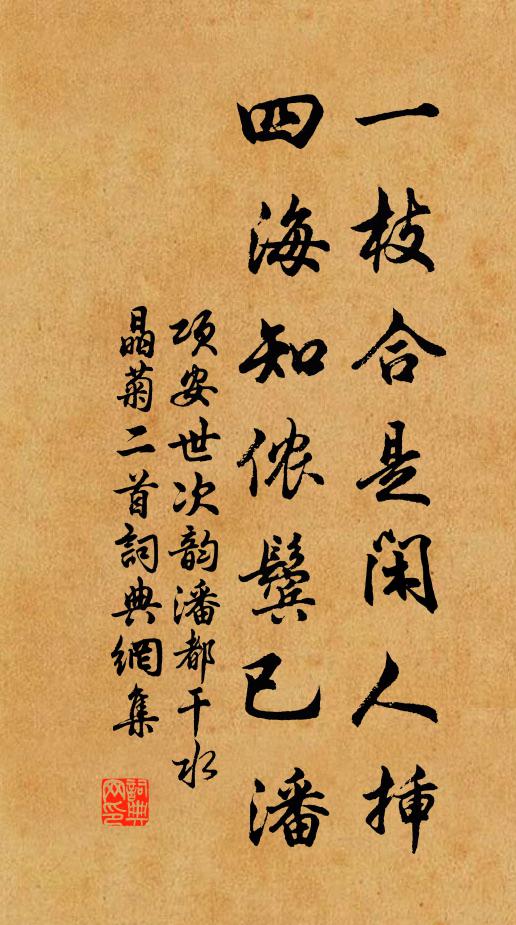 一枝合是閑人挿
四海知侬鬓已潘
项安世次韵潘都干水
晶菊二首詞典網集
詞典网印